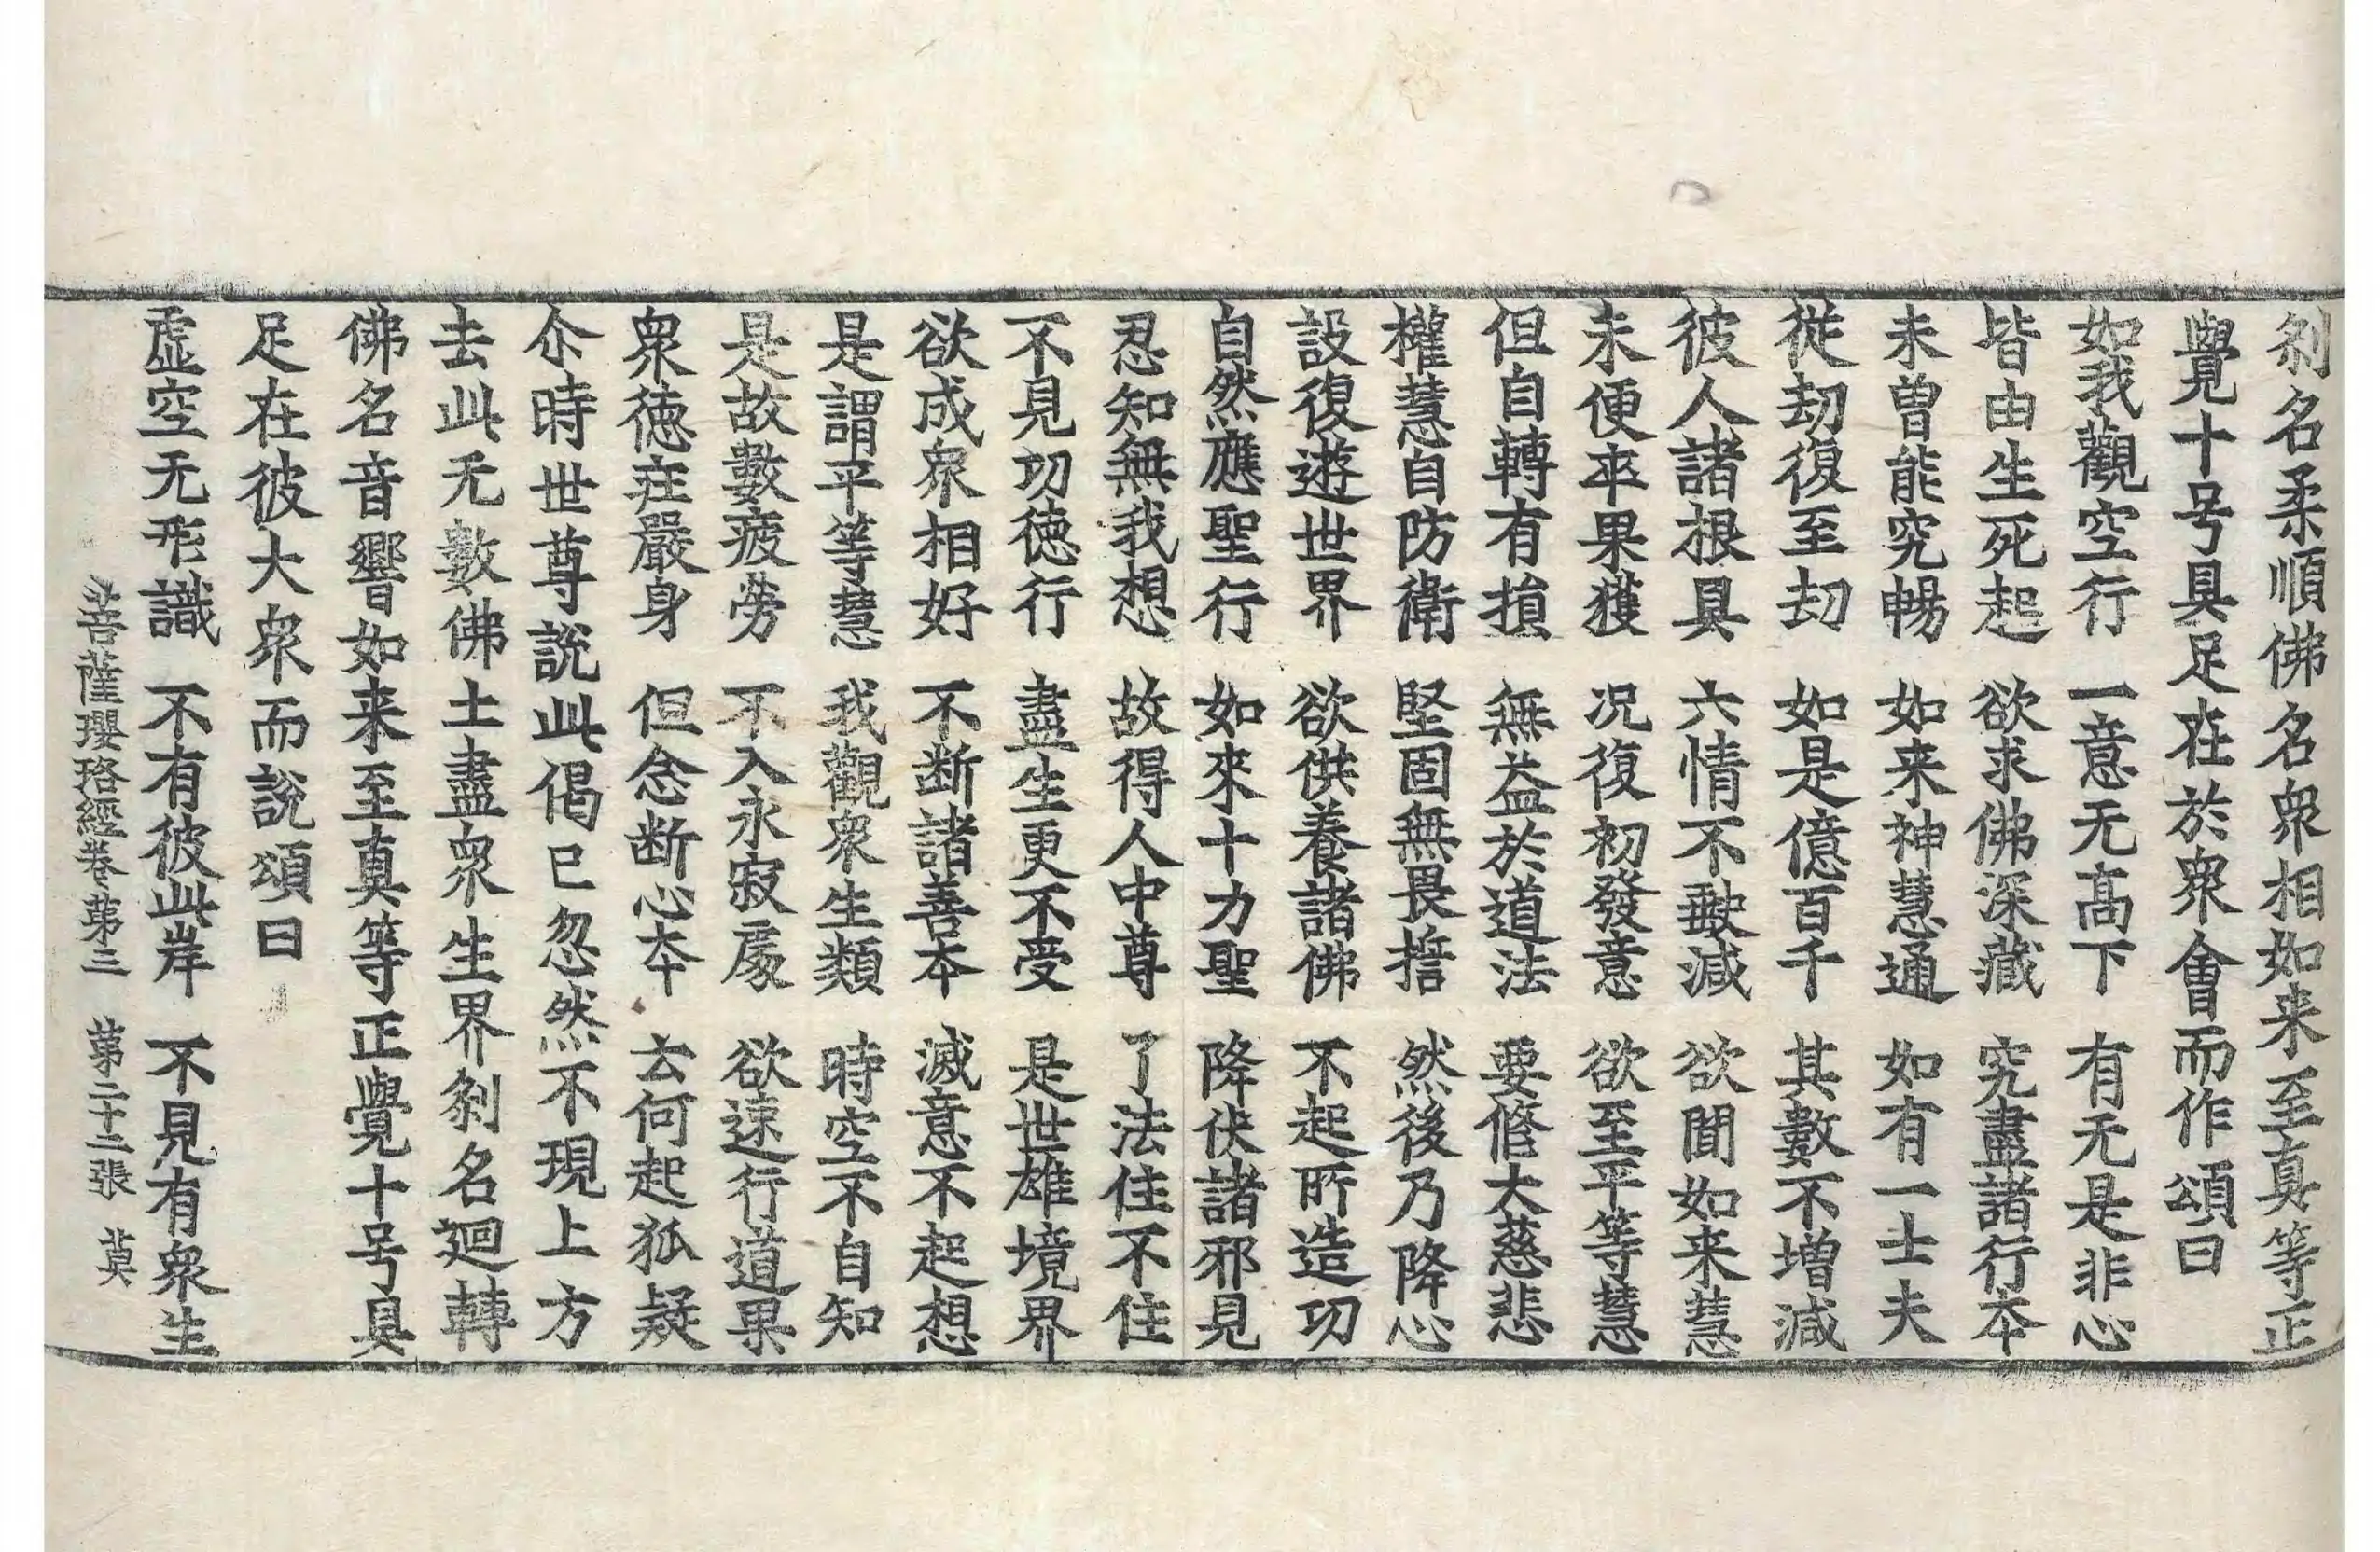 刹名柔順佛名衆相如来至真等正
覺十号具足在於衆會而作頌曰
如我觀空行　一意无髙下　有无是非心
皆由生死起　欲求佛深藏　究盡諸行夲
未曽能究暢　如来神慧通　如有一士夫
從劫復至劫　如是億百千　其數不增減
彼人諸根具　六情不𧇾減　欲聞如来慧
未便卒果獲　況復初發意　欲至平等慧
但自轉有損　無益於道法　要脩大慈悲
權慧自防衛　堅固無畏誓　然後乃降心
設復遊世界　欲供養諸佛　不起所造功
自然應聖行　如來十力聖　降伏諸邪見
忍知無我想　故得人中尊　了法住不住
不見功徳行　盡生更不受　是世雄境界
欲成衆相好　不断諸善夲　滅意不起想
是謂平等慧　我觀衆生類　時空不自知
是故數疲勞　不入永寂處　欲速行道果
衆徳莊嚴身　但念断心夲　云何起狐疑
尒時世尊說此偈已忽然不現上方
去此无數佛土盡衆生界刹名迴轉
佛名音響如来至真等正覺十号具
足在彼大衆而說頌曰
虛空无形識　不有彼此岸　不見有衆生
菩薩瓔珞經卷第三　第二十二張　莫